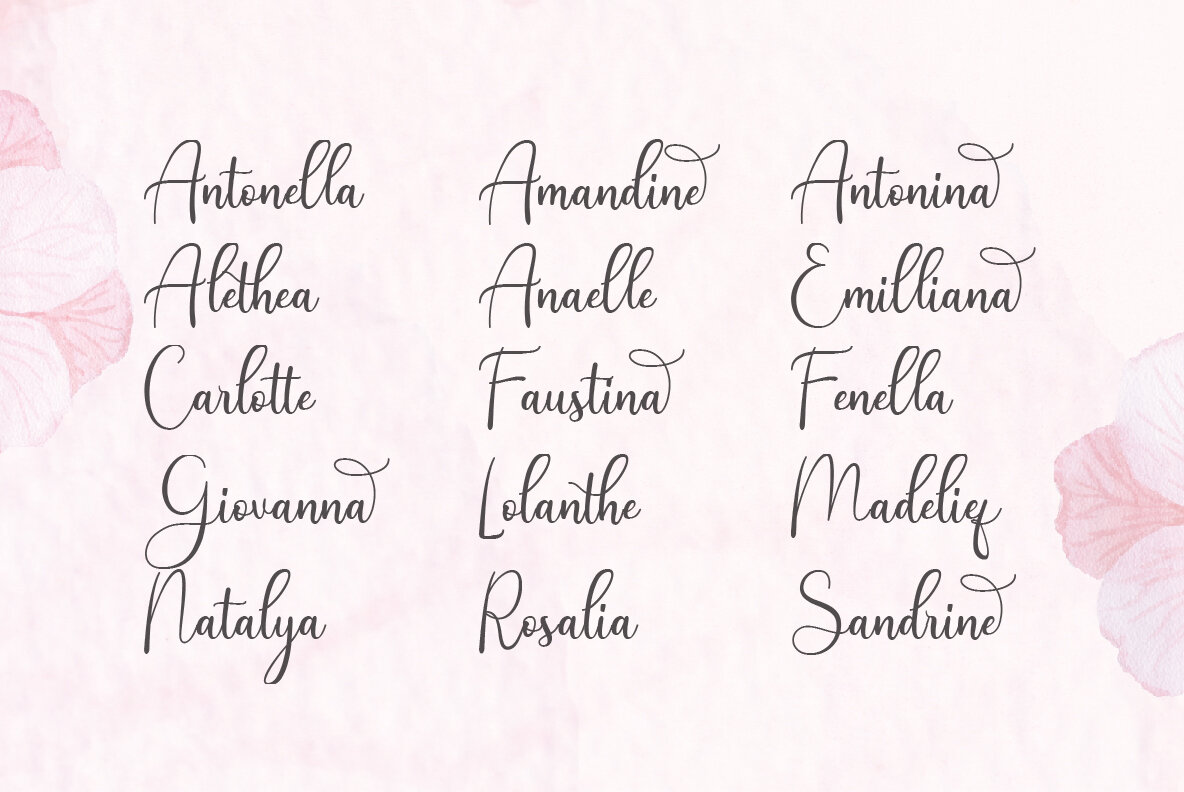 Antonella Amandine Antonina
Alethea Anaelle Emilliana
Carlotte Faustina Fenella
Giovanna Lolanthe Madelief
Natalya Rosalia Sandrine